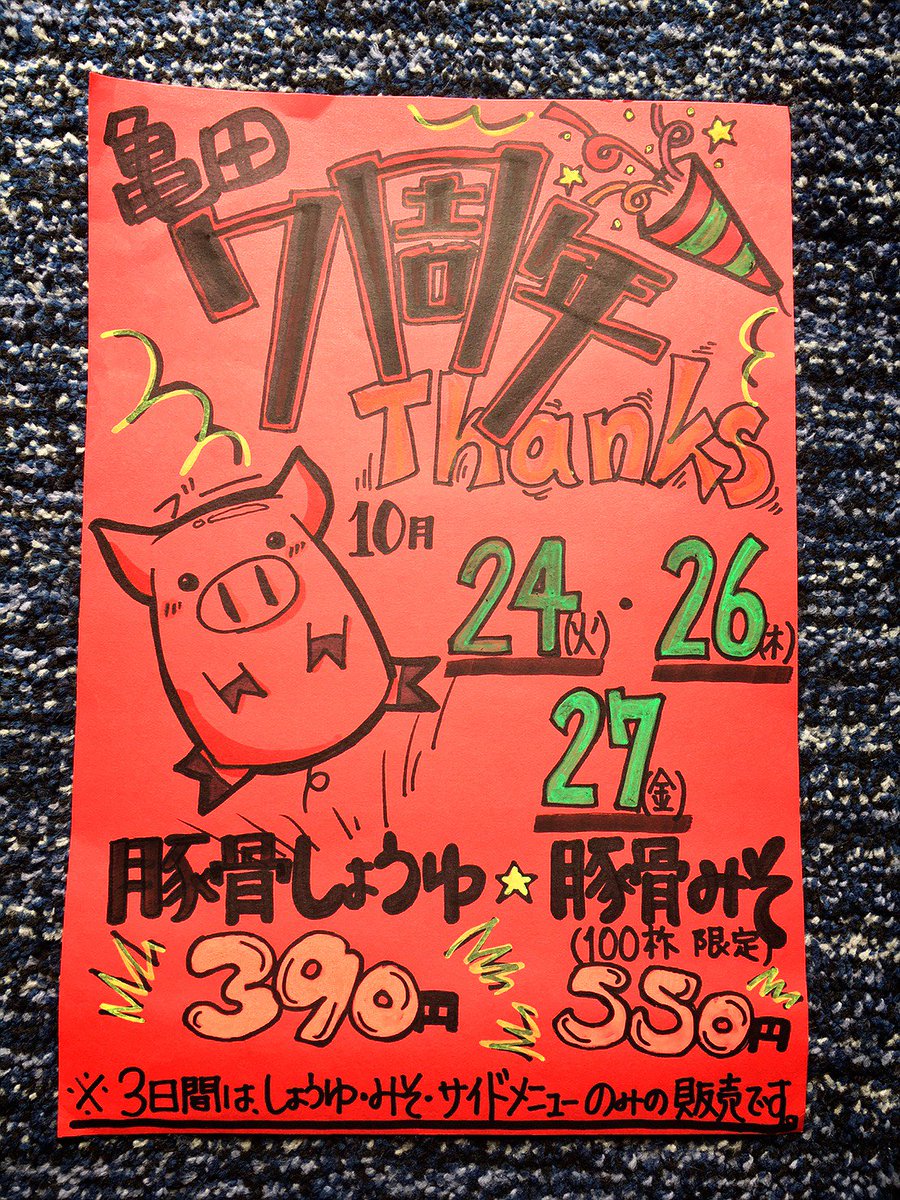 亀田
7周年
Thanks
10月
24(火)・26(木)
27(金)
豚骨しょうゆ☆豚骨みそ
(100杯 限定)
390円 550円
※3日間は、しょうゆ・みそ・サイドメニューのみの販売です。